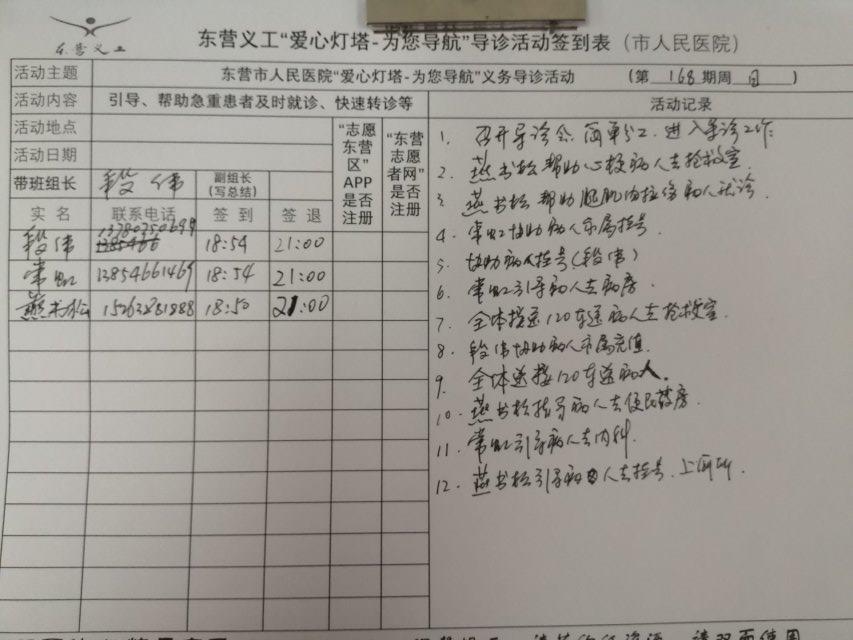 东营义工
东营义工“爱心灯塔-为您导航”导诊活动签到表（市人民医院）
活动主题 东营市人民医院“爱心灯塔-为您导航”义务导诊活动 （第 168 期周 日 ）
活动内容 引导、帮助急重患者及时就诊、快速转诊等 活动记录
活动地点
活动日期
带班组长 段伟 副组长（写总结）
“志愿东营区”APP是否注册
“东营志愿者网”是否注册
实名 联系电话 签到 签退
段伟 13780750699 18:54 21:00
常虹 13854661469 18:54 21:00
燕书松 15263881988 18:50 21:00
1. 召开导诊会、简单分工、进入导诊工作
2. 燕书松帮助心梗病人去抢救室
3. 燕书松帮助腿肌肉拉伤病人就诊
4. 常虹协助病人家属挂号
5. 协助病人挂号（段伟）
6. 常虹引导病人去病房
7. 全体接送120车送病人去抢救室.
8. 段伟协助病人家属充值.
9. 全体送接120车送病人.
10. 燕书松指导病人去便民药房.
11. 常虹引导病人去内科.
12. 燕书松引导病人去挂号、上厕所.